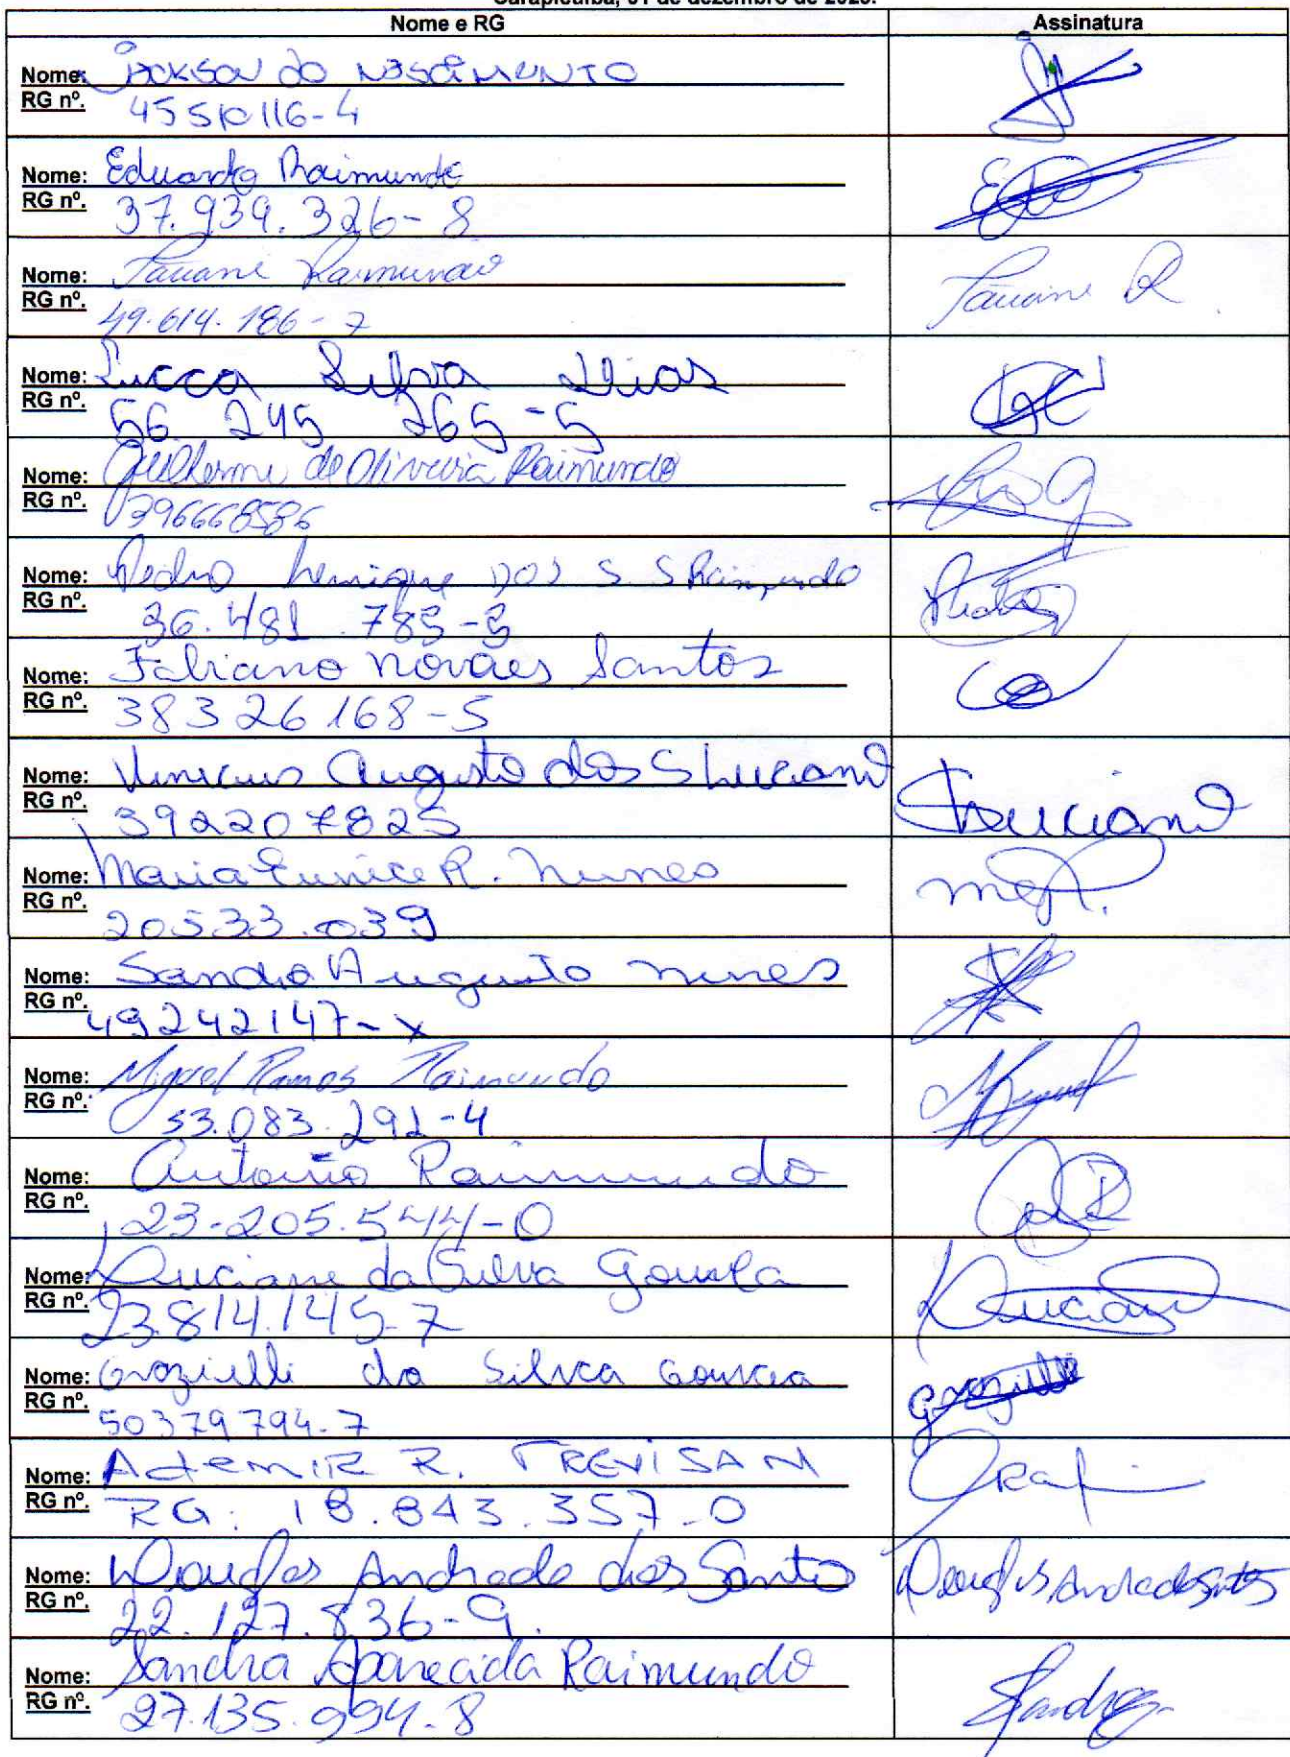 Carapicuíba, 01 de dezembro de 2023.
Nome e RG Assinatura
Nome: Jackson do Nascimento
RG nº. 45510116-4
Nome: Eduardo Raimundo
RG nº. 37.939.326-8
Nome: Tauane Raimundo Tauane R
RG nº. 49.614.186-7
Nome: Lucca Silva Dias
RG nº. 56 245 265-5
Nome: Guilherme de Oliveira Raimundo
RG nº. 396668586
Nome: Pedro henrique DOS S S Raimundo Pedro
RG nº. 36.481.785-3
Nome: Fabiano Novaes Santos
RG nº. 38326168-5
Nome: Vinicius Augusto dos S Luciano Luciano
RG nº. 392207825
Nome: Maria Eunice R. Nunes
RG nº. 20533.039
Nome: Sandro Augusto nunes
RG nº. 49242147-x
Nome: Miguel Ramos Raimundo Miguel
RG nº. 53.083.292-4
Nome: Antonio Raimundo
RG nº. 23-205.544-0
Nome: Luciane da Silva Gouvea Luciane
RG nº. 23.814.145-7
Nome: Grazielli da Silva Gouvea Grazielli
RG nº. 50379794-7
Nome: Ademir R. TREVISAN
RG nº. RG: 18.843.357-0
Nome: Douglas Andrade dos Santos Douglas Andrade Santos
RG nº. 22.127.836-9.
Nome: Sandra Aparecida Raimundo Sandra
RG nº. 27.135.994-8